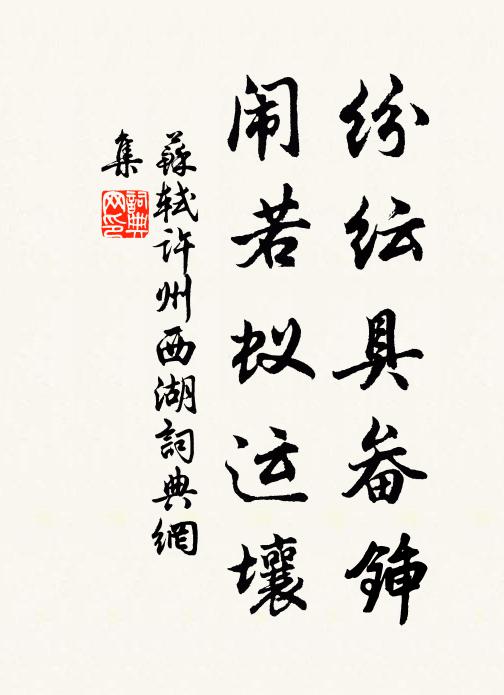 纷纭具畚锸
闹若蚁运壤
蘇轼许州西湖詞典網
集
詞典
网印